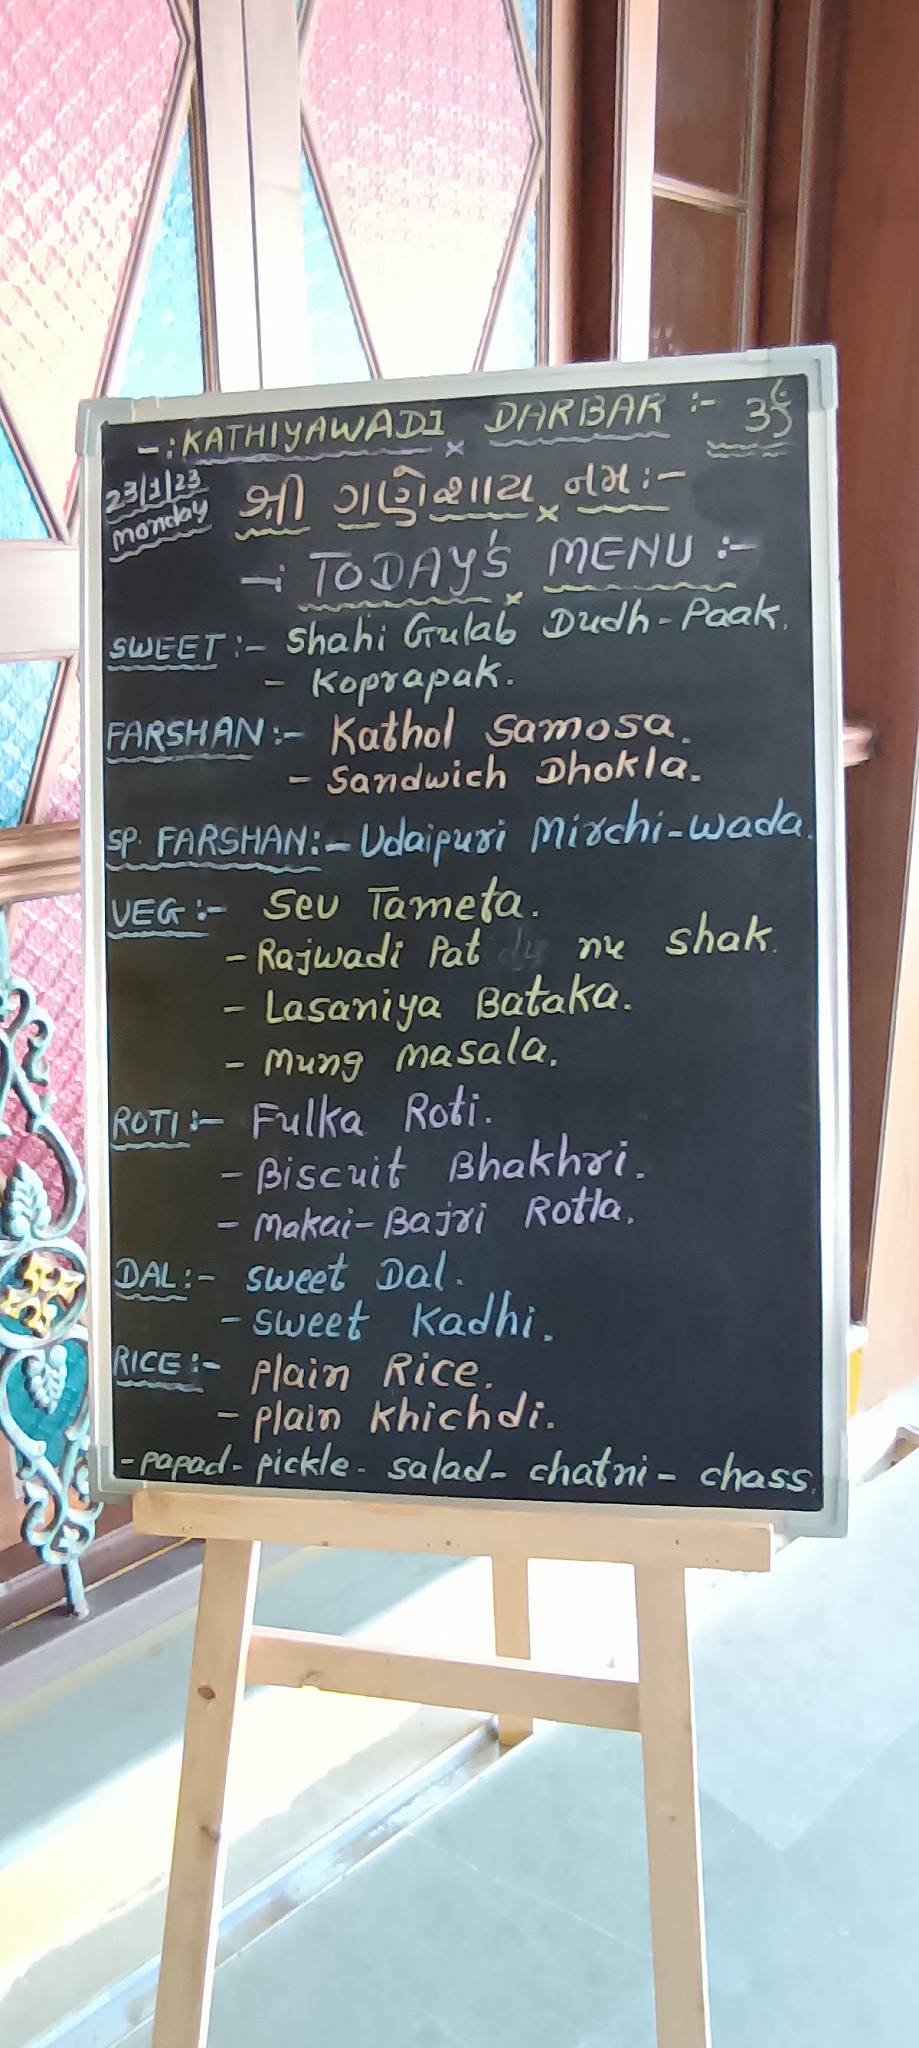 -: KATHIYAWADI DARBAR :- ૐ
23/1/23
monday
શ્રી ગણેશાય નમઃ:-
-: TODAY'S MENU :-
SWEET :- Shahi Gulab Dudh-Paak.
- Koprapak.
FARSHAN :- Kathol Samosa.
- Sandwich Dhokla.
SP. FARSHAN :- Udaipuri Mirchi-Wada.
VEG :- Sev Tameta.
- Rajwadi Pat nu Shak.
- Lasaniya Bataka.
- Mung Masala.
ROTI :- Fulka Roti.
- Biscuit Bhakhri.
- Makai-Bajri Rotla.
DAL :- Sweet Dal.
- Sweet Kadhi.
RICE :- Plain Rice.
- Plain Khichdi.
- papad - pickle - salad - chatni - chass.